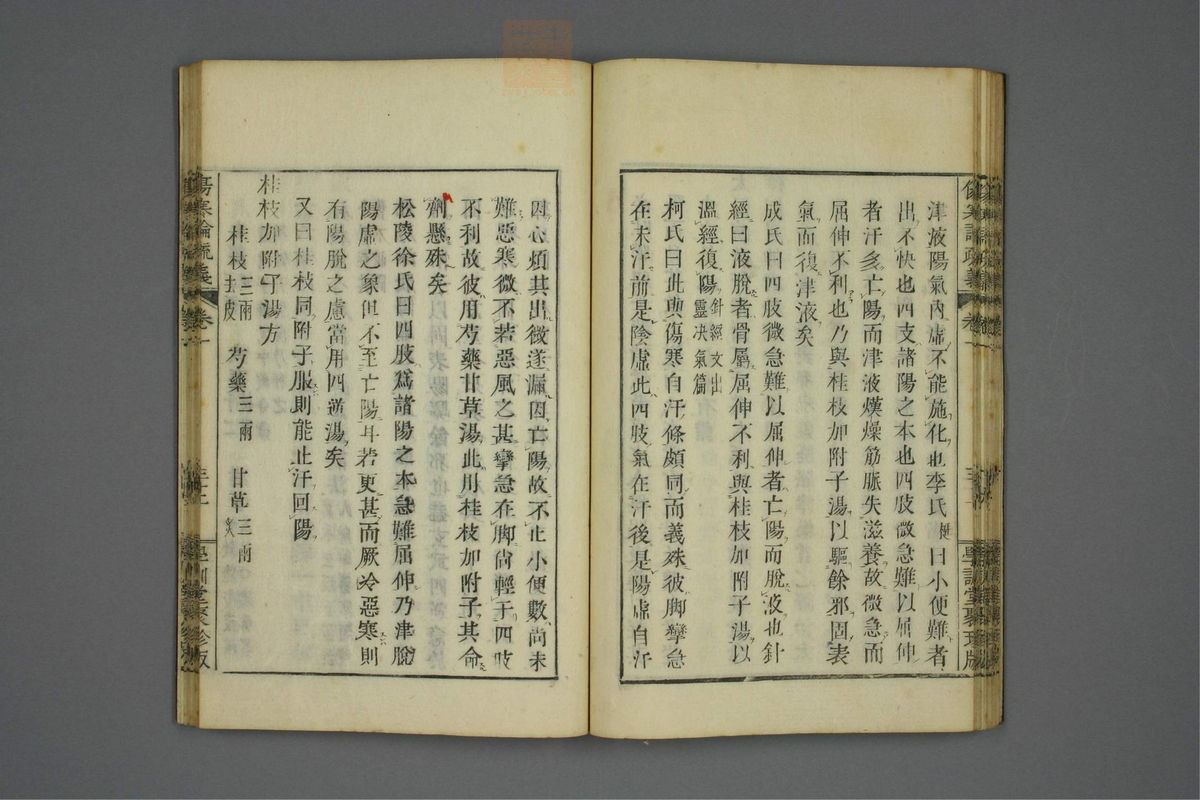 津液陽氣內虛不能施化也李氏梃曰小便難者
出不快也四支諸陽之本也四肢微急難以屈伸
者汗多亡陽而津液熯燥筋脈失滋養故微急而
屈伸不利也乃與桂枝加附子湯以驅餘邪固表
氣而復津液矣
成氏曰四肢微急難以屈伸者亡陽而脫液也針
經曰液脫者骨屬屈伸不利與桂枝加附子湯以
溫經復陽針經文出靈决氣篇
柯氏曰此與傷寒自汗條頗同而義殊彼脚攣急
在未汗前是陰虛此四肢氣在汗後是陽虛自汗
因心煩其出微遂漏因亡陽故不止小便數尙未
難惡寒微不若惡風之甚攣急在脚尙輕于四肢
不利故彼用芍藥甘草湯此用桂枝加附子其命
劑懸殊矣
松陵徐氏曰四肢爲諸陽之本急難屈伸乃津脫
陽虛之象但不至亡陽耳若更甚而厥冷惡寒則
有陽脫之慮當用四逆湯矣
又曰桂枝同附子服則能止汗回陽
桂枝加附子湯方
桂枝三兩去皮 芍藥三兩 甘草三兩炙
傷寒論疏義 卷一 學訓堂聚珍版